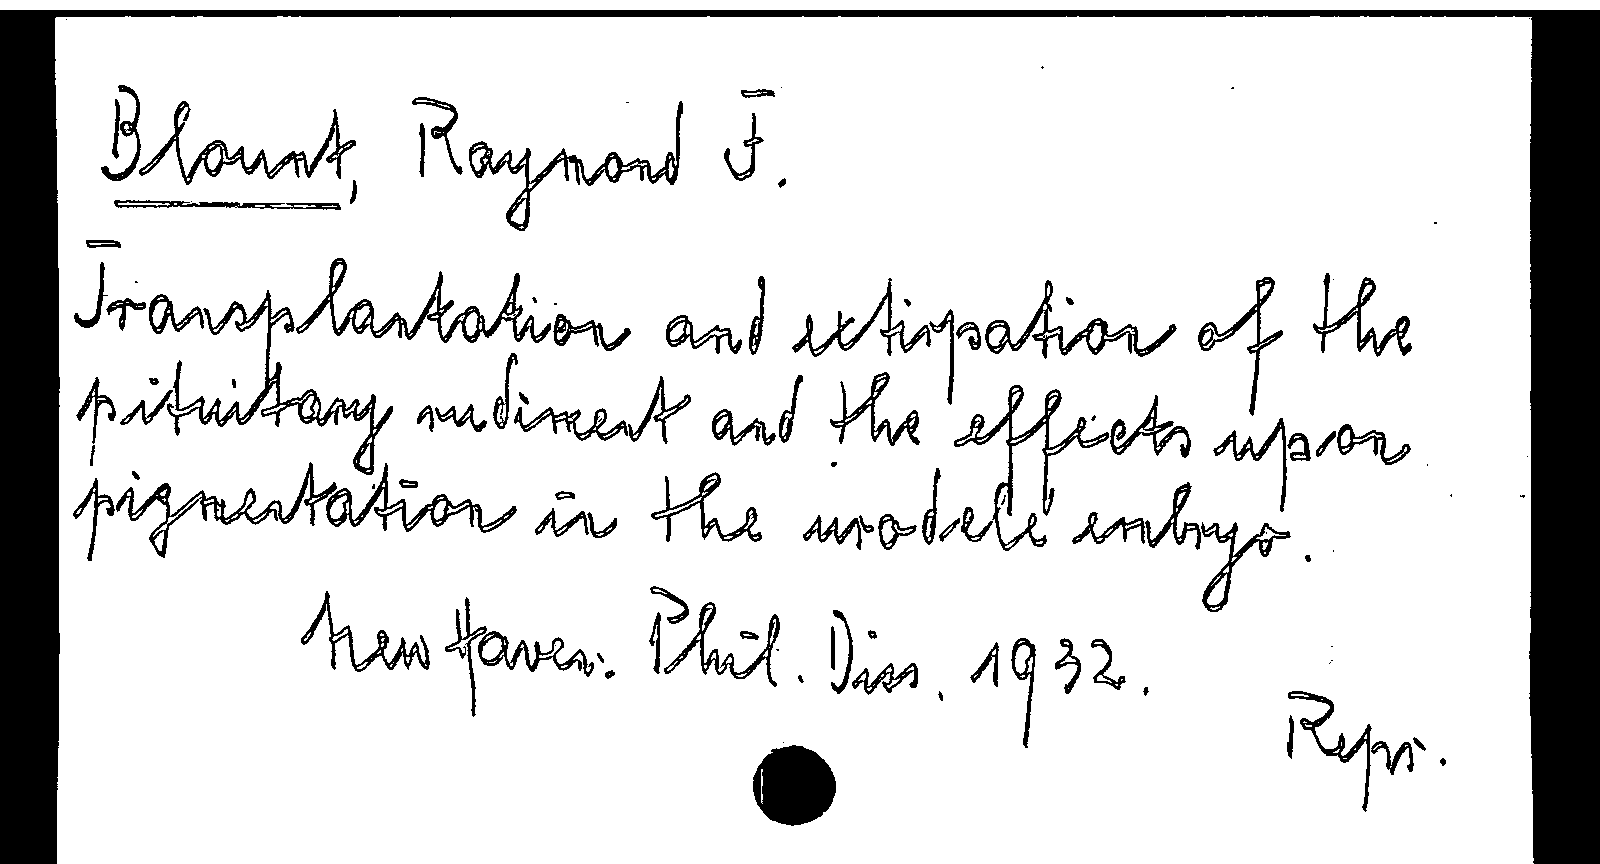 Blount, Raymond F.
Transplantation and extirpation of the
pituitary rudiment and the effects upon
pigmentation in the urodele embryo.
New Haven: Phil. Diss. 1932.
Repr.